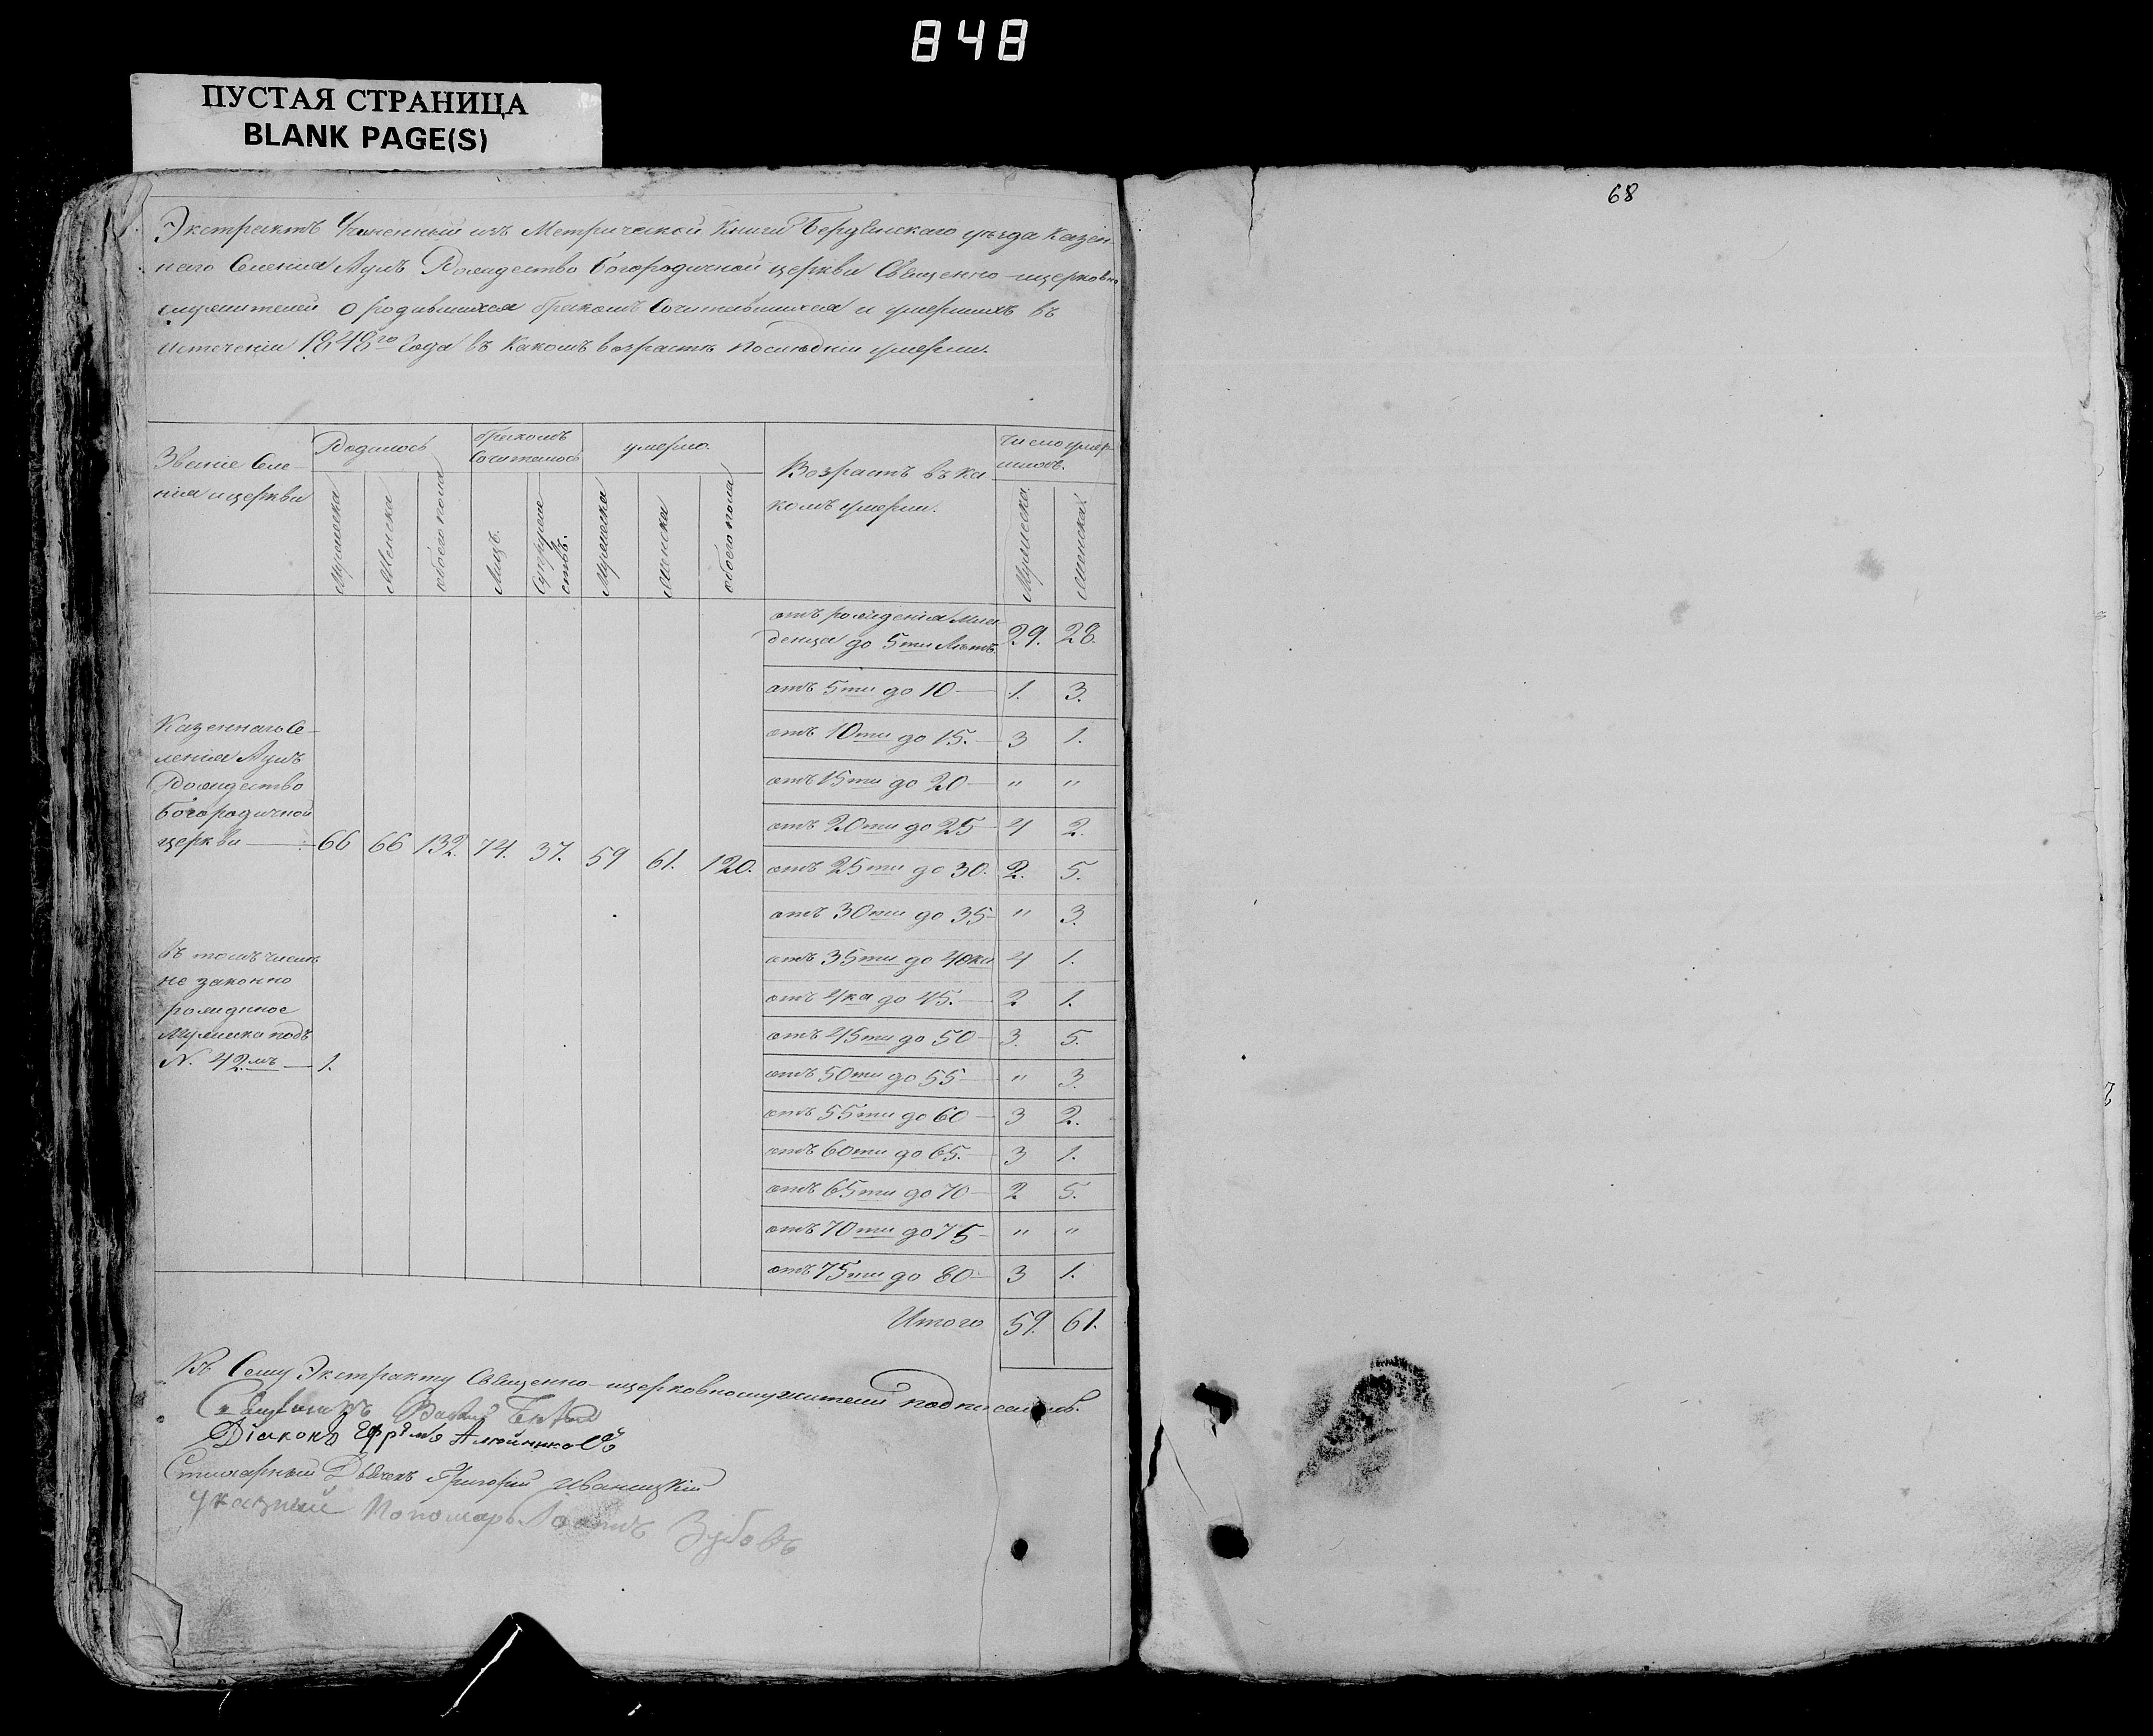 848
ПУСТАЯ СТРАНИЦА
BLANK PAGE(S)
68
Экстрактъ Учиненный изъ Метрической Книги Бердянскаго уѣзда Казен-
наго Селенія Аулъ Рождество Богородичной церкви Священно-церковно
служителей о родившихся бракомъ Сочитавшихся и умершихъ въ
истеченіи 1848го Года въ какомъ возрастѣ последніи умерли.
Званіе Селе-
нія и церкви
Родилось
Мужеска
Женска
обоего пола
бракомъ
Сочиталось
Лицъ.
Супруже
ствъ.
умерло.
Мужеска
женска
обоего пола
Возрастъ въ ка
комъ умерли.
Число умер-
шихъ.
Мужеска.
женска.
отъ рожденія Мла
денца до 5ти Лѣтъ. 29. 28.
отъ 5ти до 10 — 1. 3.
отъ 10ти до 15. — 3 1.
отъ 15ти до 20 — " "
отъ 20ти до 25 — 4 2.
отъ 25ти до 30. 2. 5.
отъ 30ти до 35 — " 3.
отъ 35ти до 40ка 4 1.
отъ 4ка до 45. — 2 1.
отъ 45ти до 50 — 3. 5.
отъ 50ти до 55 — " 3.
отъ 55ти до 60 — 3 2.
отъ 60ти до 65. — 3 1.
отъ 65ти до 70 — 2 5.
отъ 70ти до 75 — " "
отъ 75ти до 80 — 3 1.
Итого 59. 61.
Казеннаго Се-
ленія Аулъ
Рождество
Богородичной
церкви — 66 66 132. 74. 37. 59 61. 120.
въ томъ числѣ
не законно
рожденное
Мужеска подъ
N. 42мъ — 1.
Къ Сему Экстракту Священно-церковнослужители подписались.
Священникъ
Діаконъ Ефремъ
Стихарный Дьячекъ Григорій Иваницкій
Указный Пономарь Зубовъ